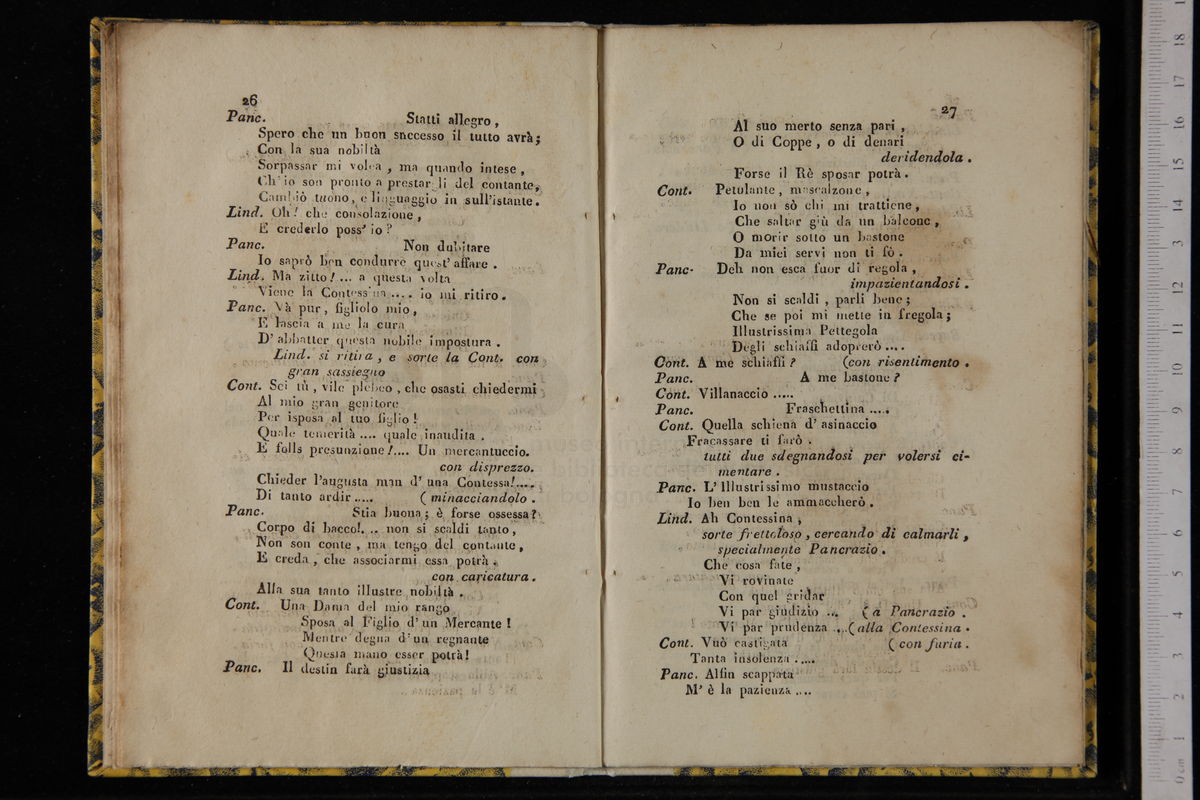 26
Panc. Statti allegro,
Spero che un buon successo il tutto avrà;
Con la sua nobiltà
Sorpassar mi volea, ma quando intese,
Ch'io son pronto a prestargli del contante,
Cambiò tuono, e linguaggio in sull'istante.
Lind. Oh! che consolazione,
E crederlo poss' io?
Panc. Non dubitare
Io saprò ben condurre quest' affare.
Lind. Ma zitto!... a questa volta
Viene la Contessina.... io mi ritiro.
Panc. Và pur, figliolo mio,
E lascia a me la cura
D' abbatter questa nobile impostura.
Lind. si ritira, e sorte la Cont. con
gran sassiegno
Cont. Sei tù, vile plebeo, che osasti chiedermi
Al mio gran genitore
Per isposa al tuo figlio!
Quale temerità.... quale inaudita.
E folls presunzione!.... Un mercantuccio.
con disprezzo.
Chieder l'augusta man d' una Contessa!....
Di tanto ardir..... (minacciandolo.
Panc. Stia buona; è forse ossessa?
Corpo di bacco!... non si scaldi tanto,
Non son conte, ma tengo del contante,
E creda, che associarmi essa potrà.
con caricatura.
Alla sua tanto illustre nobiltà.
Cont. Una Dama del mio rango
Sposa al Figlio d' un Mercante!
Mentre degna d' un regnante
Questa mano esser potrà!
Panc. Il destin farà giustizia
27
Al suo merto senza pari,
O di Coppe, o di denari
deridendola.
Forse il Rè sposar potrà.
Cont. Petulante, mascalzone,
Io non sò chi mi trattiene,
Che saltar giù da un balcone,
O morir sotto un bastone
Da miei servi non ti fò.
Panc. Deh non esca fuor di regola,
impazientandosi.
Non si scaldi, parli bene;
Che se poi mi mette in fregola;
Illustrissima Pettegola
Degli schiaffi adoprerò....
Cont. A me schiaffi? (con risentimento.
Panc. A me bastone?
Cont. Villanaccio.....
Panc. Fraschettina.....
Cont. Quella schiena d' asinaccio
Fracassare ti farò.
tutti due sdegnandosi per volersi ci-
mentare.
Panc. L' Illustrissimo mustaccio
Io ben ben le ammaccherò.
Lind. Ah Contessina,
sorte frettoloso, cercando di calmarli,
specialmente Pancrazio.
Che cosa fate,
Vi rovinate
Con quel gridar
Vi par giudizio ... (a Pancrazio.
Vi par prudenza ...(alla Contessina.
Cont. Vuò castigata (con furia.
Tanta insolenza.....
Panc. Alfin scappata
M' è la pazienza....